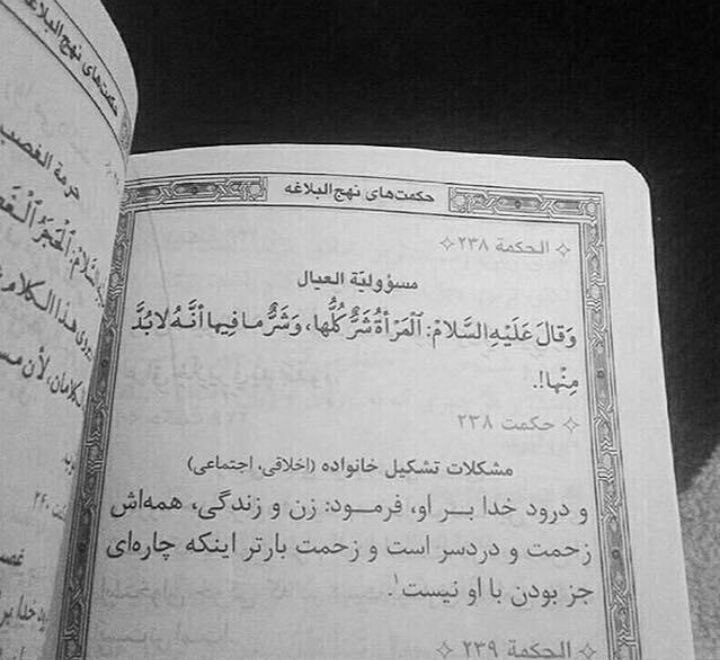 حکمت‌های نهج البلاغه
الحكمة ۲۳۸
مسؤوليّة العيال
وَقالَ عَلَيْهِ السَّلامُ: اَلْمَرْأةُ شَرٌّ كُلُّها، وَشَرُّ ما فيها أنَّهُ لابُدَّ
مِنْها!.
حکمت ۲۳۸
مشکلات تشکیل خانواده (اخلاقی، اجتماعی)
و درود خدا بـر او، فرمـود: زن و زندگی، همه‌اش
زحمت و دردسر است و زحمت بارتر اینکه چاره‌ای
جز بودن با او نیست۱.
الحكمة ۲۳۹
حکمت‌های نهج البلاغه
حرمة الغصب
السَّلامُ: اَلْحَجَرُ
هذا الكلام
لأن